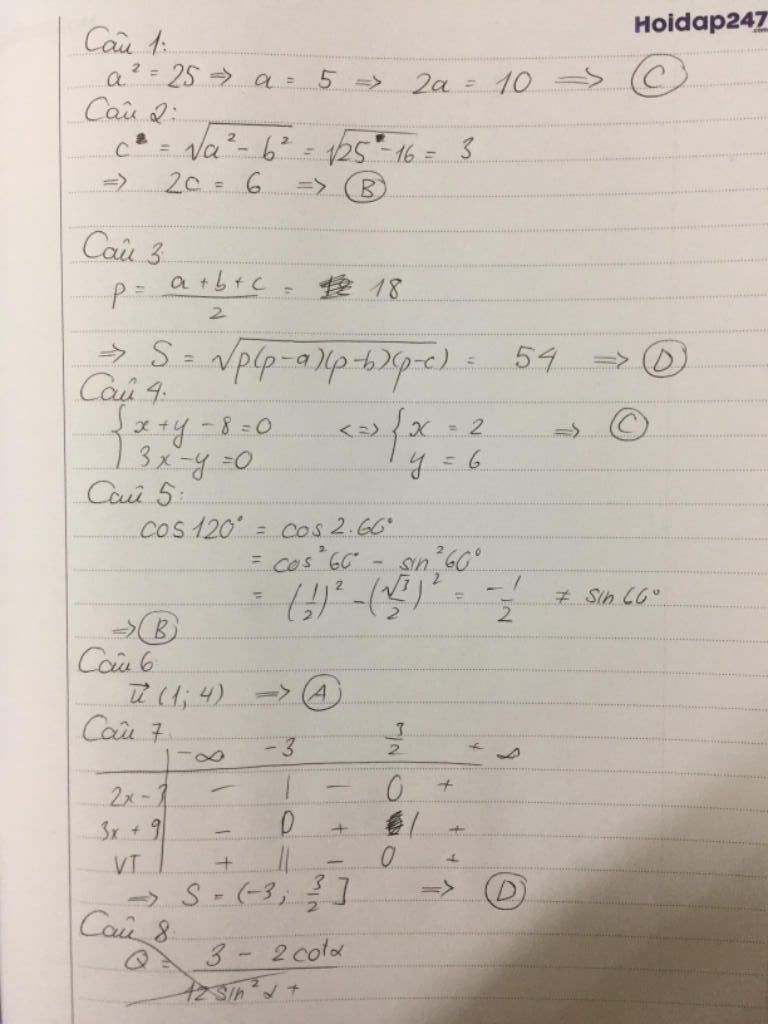 Hoidap247
.com
Câu 1:
a² = 25 => a = 5 => 2a = 10 => C
Câu 2:
c = √(a² - b²) = √(25 - 16) = 3
=> 2c = 6 => B
Câu 3
p = (a + b + c)/2 = 18
=> S = √(p(p-a)(p-b)(p-c)) = 54 => D
Câu 4:
{ x + y - 8 = 0 <=> { x = 2 => C
{ 3x - y = 0 { y = 6
Câu 5:
cos 120° = cos 2.60°
= cos²60° - sin²60°
= (1/2)² - (√3/2)² = -1/2 ≠ sin 60°
=> B
Câu 6
u⃗ (1; 4) => A
Câu 7
-∞ -3 3/2 +∞
2x - 3 - | - 0 +
3x + 9 - 0 + | +
VT + || - 0 +
=> S = (-3; 3/2] => D
Câu 8
Q = 3 - 2cotα
12 sin²α +